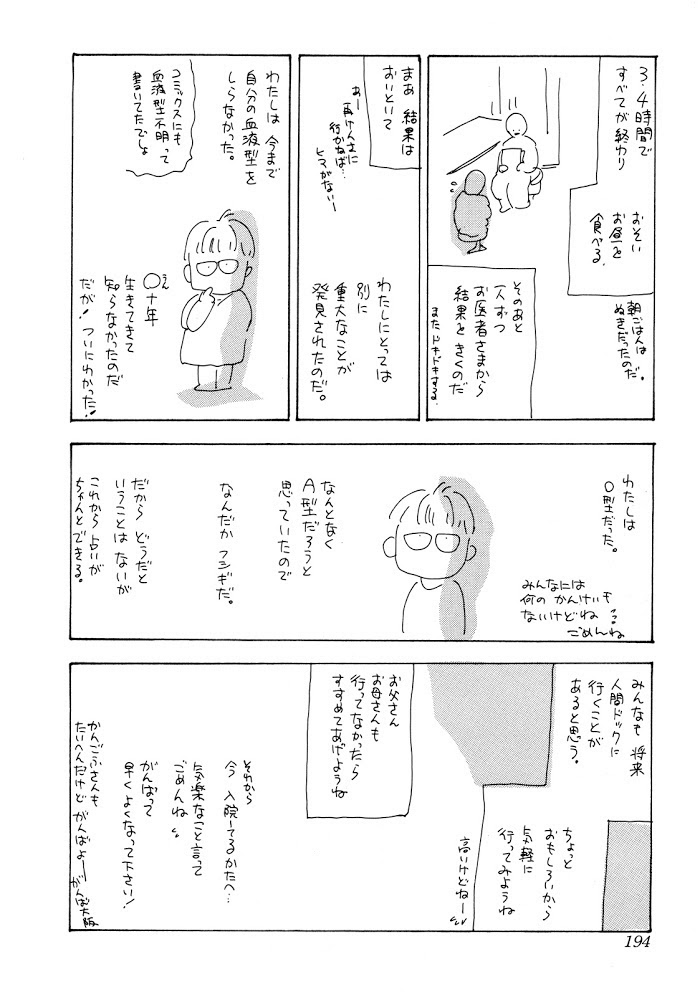 3、4時間で
すべてが終わり
おそい
お昼を
食べる。
朝ごはんは
ぬきだったのだ。
そのあと
一人ずつ
お医者さまから
結果をきくのだ
またドキドキする。
まあ 結果は
おいといて
あー
再けんさに
行かねば…
ヒマがないー
わたしにとっては
別に
重大なことが
発見されたのだ。
わたしは 今まで
自分の血液型を
しらなかった。
コミックスにも
血液型不明って
書いてたでしょ
え
〇十年
生きてきて
知らなかったのだ
だが!ついにわかった!
わたしは
O型だった。
みんなには
何の かんけいも
ないけどね
ごめんね
なんとなく
A型だろうと
思っていたので
なんだか フシギだ。
だから どうだと
いうことは ないが
これから 占いが
ちゃんとできる。
みんなも 将来
人間ドックに
行くことが
あると思う。
ちょっと
おもしろいから
気軽に
行ってみようね
高いけどねー
お父さん
お母さんも
行ってなかったら
すすめてあげようね
それから
今 入院してるかたへ…
気楽なこと言って
ごめんね
がんばって
早くよくなって下さい!
かんごふさんも
たいへんだけど がんばよー
がんば大阪
194